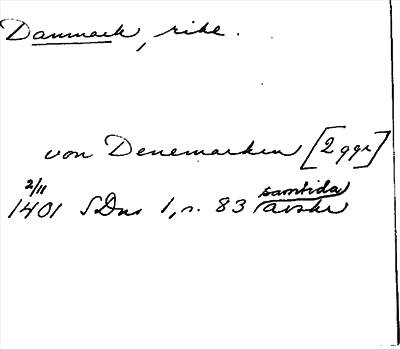 Danmark, rike.
von Denemarken [2 ggr]
2/11
1401 SDns 1, n. 83 samtida avskr